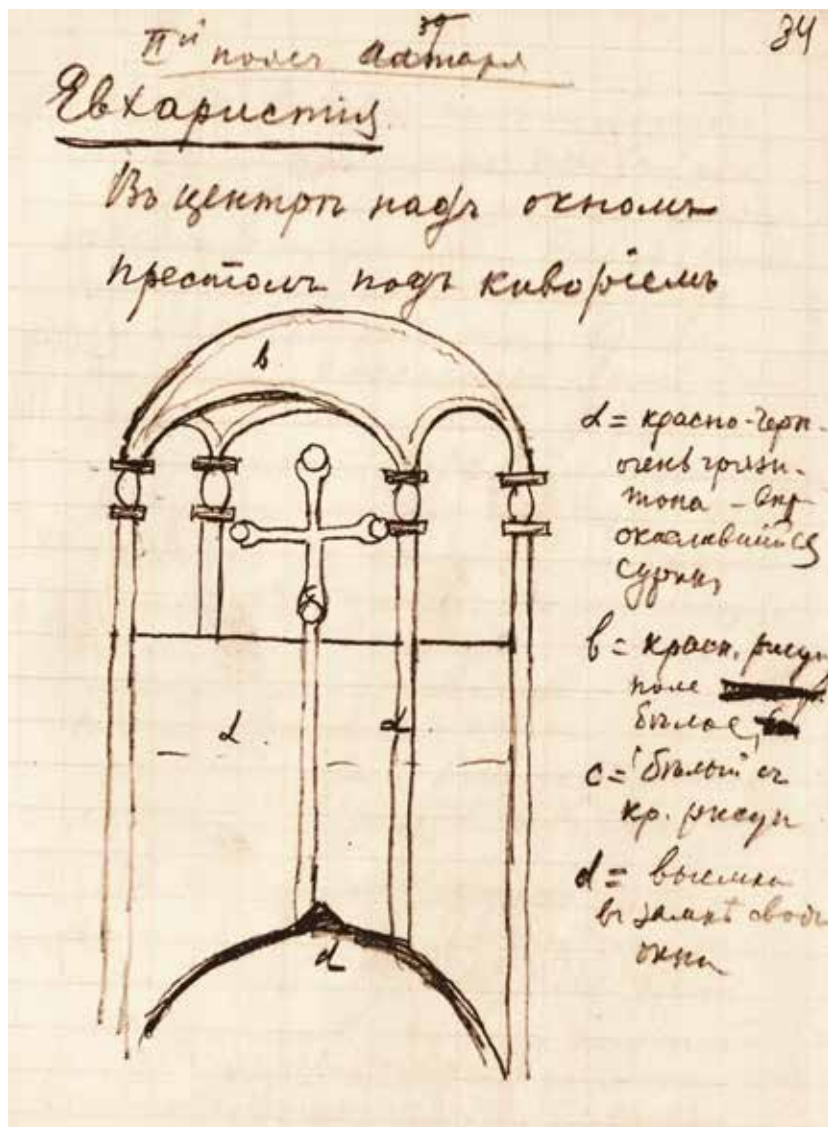 34
IIй поясъ Алтаря
Евхаристія.
Въ центрѣ надъ окномъ
престолъ подъ киворіемъ
b
α = красно-черн.
очень грязн.
тона –
сурикъ
b = красн. рисун
поле
бѣлое,
α α
c = бѣлый съ
кр. рисун
d = выемка
въ замкѣ свода
окна
d